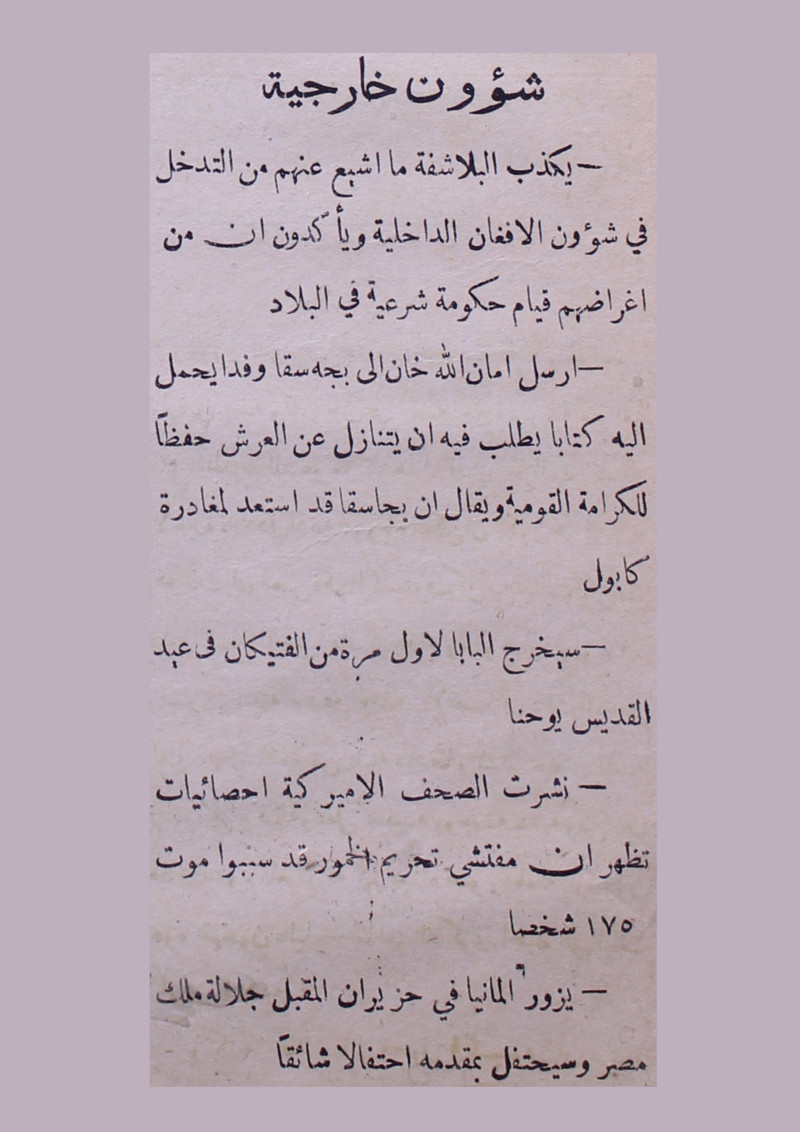 شؤون خارجية
— يكذب البلاشفة ما اشيع عنهم من التدخل
في شؤون الافغان الداخلية ويأكدون ان من
اغراضهم قيام حكومة شرعية في البلاد
— ارسل امان الله خان الى بجه سقا وفدا يحمل
اليه كتابا يطلب فيه ان يتنازل عن العرش حفظاً
للكرامة القومية ويقال ان بجاسقا قد استعد لمغادرة
كابول
— سيخرج البابا لاول مرة من الفتيكان فى عيد
القديس يوحنا
— نشرت الصحف الاميركية احصائيات
تظهر ان مفتشي تحريم الخمور قد سببوا موت
١٧٥ شخصا
— يزور المانيا في حزيران المقبل جلالة ملك
مصر وسيحتفل بمقدمه احتفالا شائقاً